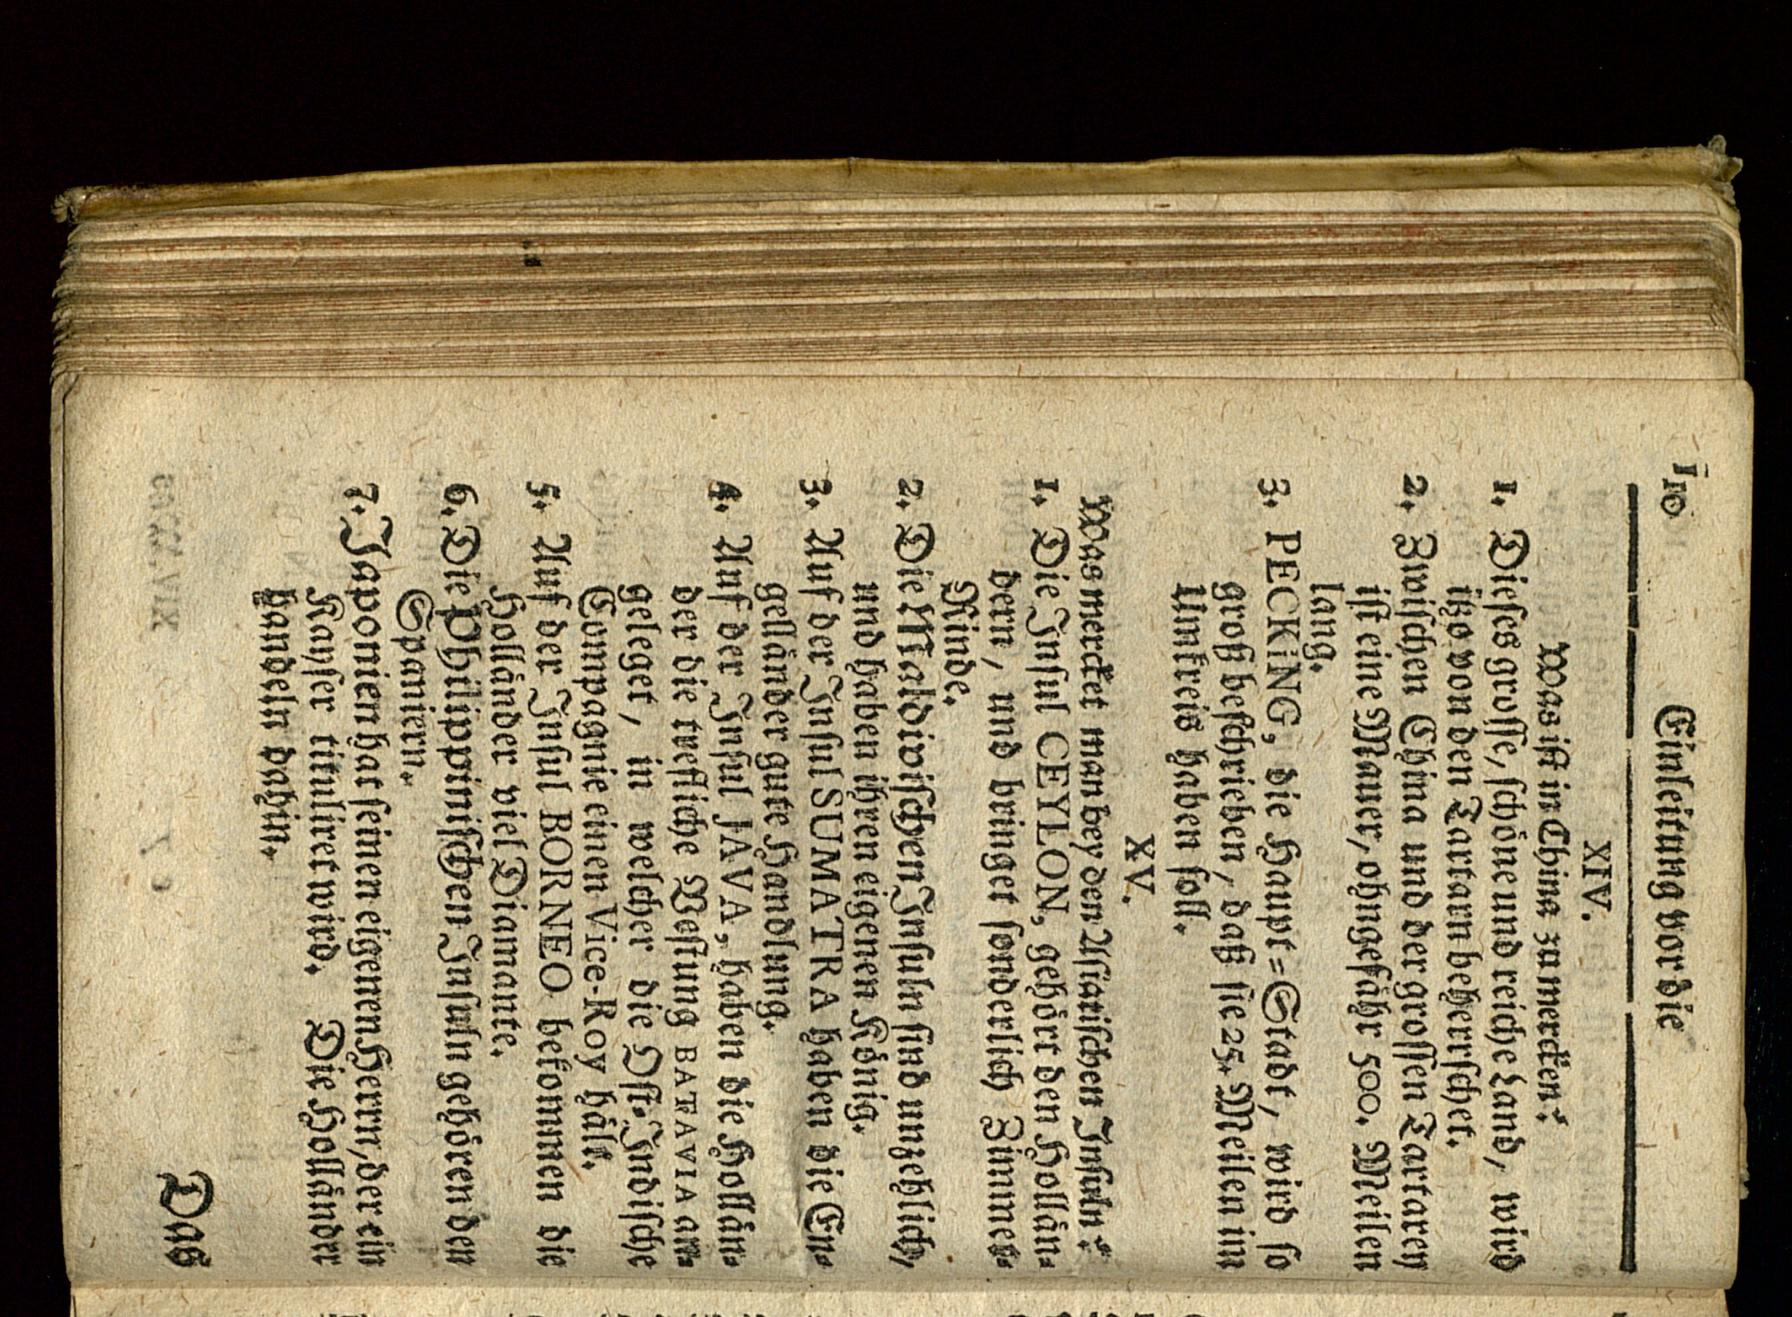 110 Einleitung vor die
XIV.
Was ist in China zu mercken?
1. Dieses grosse, schöne und reiche Land, wird
itzo von den Tartarn beherrschet.
2. Zwischen China und der grossen Tartarey
ist eine Mauer, ohngefähr 500. Meilen
lang.
3. PECKiNG, die Haupt-Stadt, wird so
groß beschrieben, daß sie 25. Meilen im
Umkreis haben soll.
XV.
Was mercket man bey den Asiatischen Insuln?
1. Die Insul CEYLON, gehört den Hollän-
dern, und bringet sonderlich Zimmet-
Rinde.
2. Die Maldivischen Insuln sind unzehlich,
und haben ihren eigenen König.
3. Auf der Insul SUMATRA haben die En-
gelländer gute Handlung.
4. Auf der Insul JAVA, haben die Hollän-
der die trefliche Vestung BATAVIA an-
geleget, in welcher die Ost-Indische
Compagnie einen Vice-Roy hält.
5. Auf der Insul BORNEO bekommen die
Holländer viel Diamante.
6. Die Philippinischen Insuln gehören den
Spaniern.
7. Japonien hat seinen eigenen Herrn, der ein
Kayser tituliret wird. Die Holländer
handeln dahin.
Das